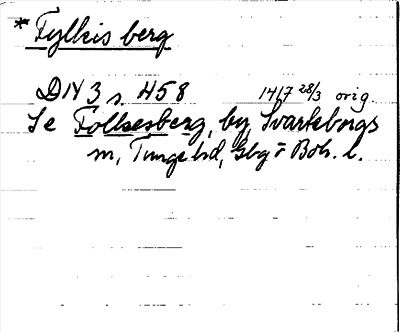 * Fylkis berg
DN 3 s. 458 1417 28/3 orig.
Se Folkesberg, by, Svarteborgs
sn, Tunge hd, Gbg o Boh. l.